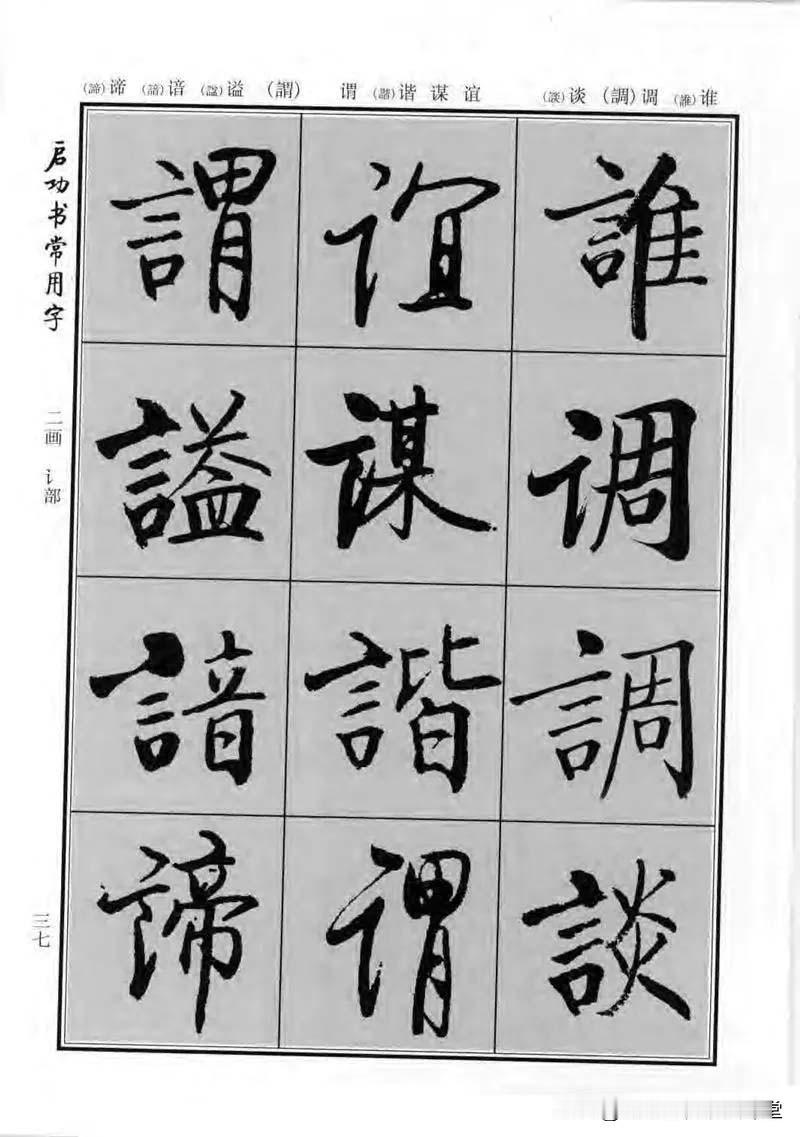 (誰)谁 (調)调 (談)谈
谊 谋 (諧)谐 谓
(謂) (謚)谥 (諳)谙 (諦)谛
誰
调
調
談
谊
谋
諧
谓
謂
謚
諳
諦
启功书常用字
二画 讠部
三七